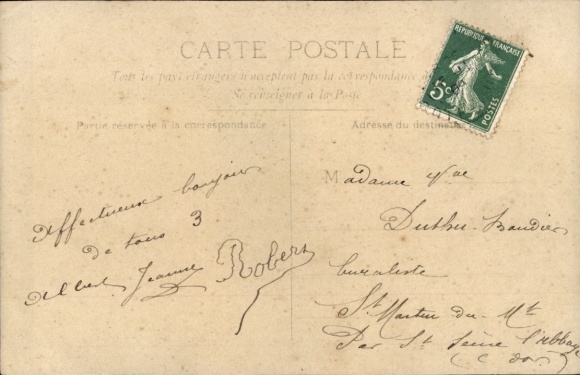 CARTE POSTALE
Tous les pays étrangers n'acceptent pas la correspondance
Se renseigner à la Poste
Partie réservée à la correspondance
Adresse du destinataire
REPUBLIQUE FRANÇAISE
5c
POSTES
Affectueux bonjour
de tous 3
Albert Jeanne Robert
Madame Vve
Duthu-Baudier
buraliste
St Martin du Mt
Par St Seine l'Abbaye
(C d'or)